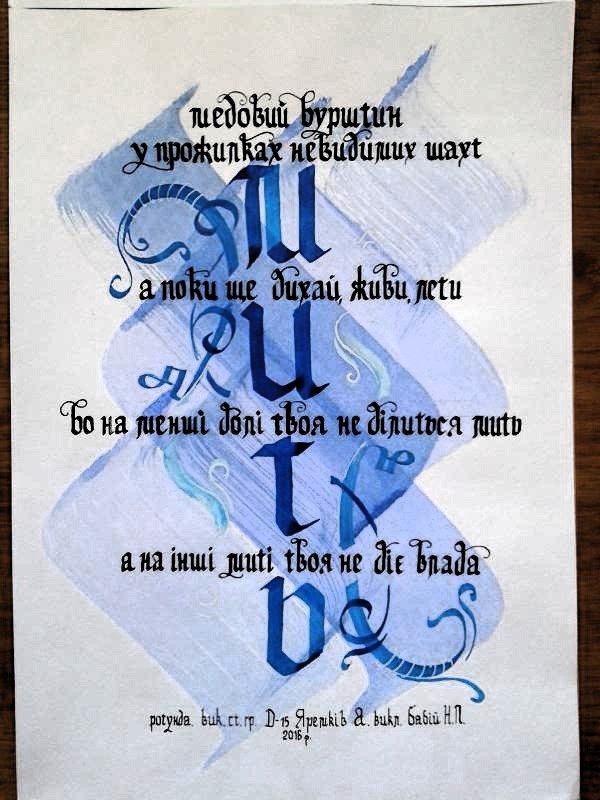 медовий бурштин
у прожилках невидимих шахт
а поки ще дихай, живи, лети
бо на менші долі твоя не ділиться мить
а на інші миті твоя не діє влада
мить
ротунда. вик. ст. гр. D-15 Яремків А. викл. Бабій Н.П.
2016 р.